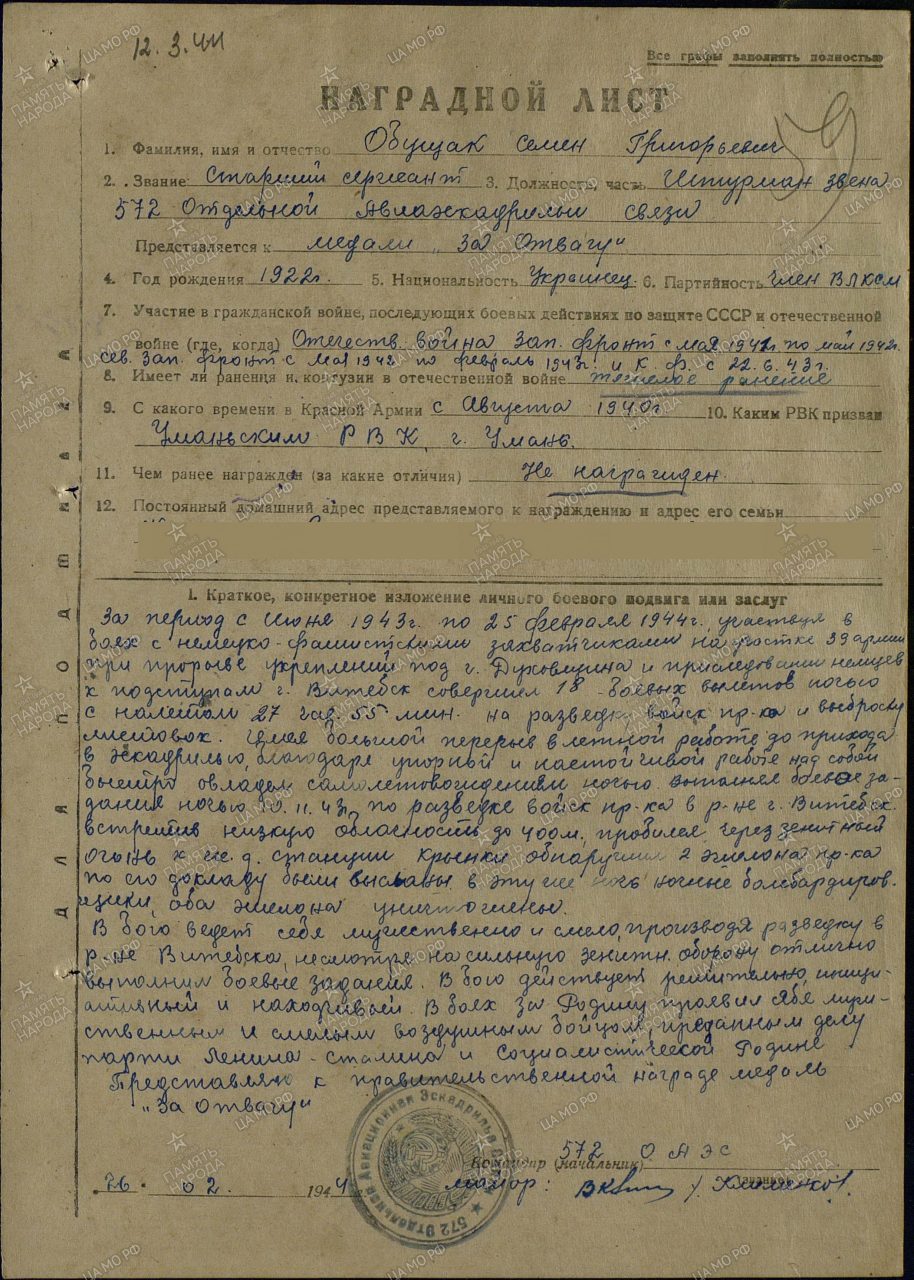 12.3.44
Все графы заполнять полностью
НАГРАДНОЙ ЛИСТ
59
1. Фамилия, имя и отчество Обущак Семен Григорьевич
2. Звание Старший сержант 3. Должность, часть Штурман звена
572 Отдельной Авиаэскадрильи связи
Представляется к медали „За Отвагу"
4. Год рождения 1922г. 5. Национальность Украинец 6. Партийность член ВЛКСМ
7. Участие в гражданской войне, последующих боевых действиях по защите СССР и отечественной
войне (где, когда) Отечеств. война Зап. фронт с мая 1942г. по май 1942г.
Сев. Зап. фронт с мая 1942 по февраль 1943г. и К. Ф. с 22.6.43г.
8. Имеет ли ранения и контузии в отечественной войне тяжелое ранение
9. С какого времени в Красной Армии с Августа 1940г. 10. Каким РВК призван
Уманьским РВК, г. Умань.
11. Чем ранее награжден (за какие отличия) Не награжден.
12. Постоянный домашний адрес представляемого к награждению и адрес его семьи
1. Краткое, конкретное изложение личного боевого подвига или заслуг
За период с Июня 1943г. по 25 февраля 1944г. участвуя в
боях с немецко-фашистскими захватчиками на участке 39 армии
при прорыве укреплений под г. Духовщина и приследовании немцев
к подступам г. Витебск совершил 18 боевых вылетов ночью
с налетом 27 час. 55 мин. на разведку войск пр-ка и выброску
листовок. Имея большой перерыв в летной работе до прихода
в эскадрилью, благодаря упорной и настойчивой работе над собой
быстро овладел самолетовождением ночью выполняя боевое за-
дания ночью 10.11.43г. по разведке войск пр-ка в р-не г. Витебск.
встретив низкую облачность до 400м, пробился через зенитный
огонь к ж.д. станции Крынки обнаружил 2 эшелона пр-ка
по его докладу были высланы в эту же ночь ночные бомбардиров-
щики, оба эшелона уничтожены.
В бою ведет себя мужественно и смело, производя разведку в
р-не Витебска, несмотря на сильную зенитн. оборону отлично
выполнил боевые задания. В бою действует решительно, иници-
ативный и находчивый. В боях за Родину проявил себя муже-
ственным и смелым воздушным бойцом, преданным делу
партии Ленина-Сталина и Социалистической Родине
Представляю к правительственной награде медаль
„За отвагу"
572 ОАЭС
Командир (начальник)
26. 02. 1944
майор: /Клименков/.
572 Отдельная Авиационная Эскадрилья Связи
ДЛЯ ПОДШИВКИ
ПАМЯТЬ НАРОДА
ЦАМО.РФ